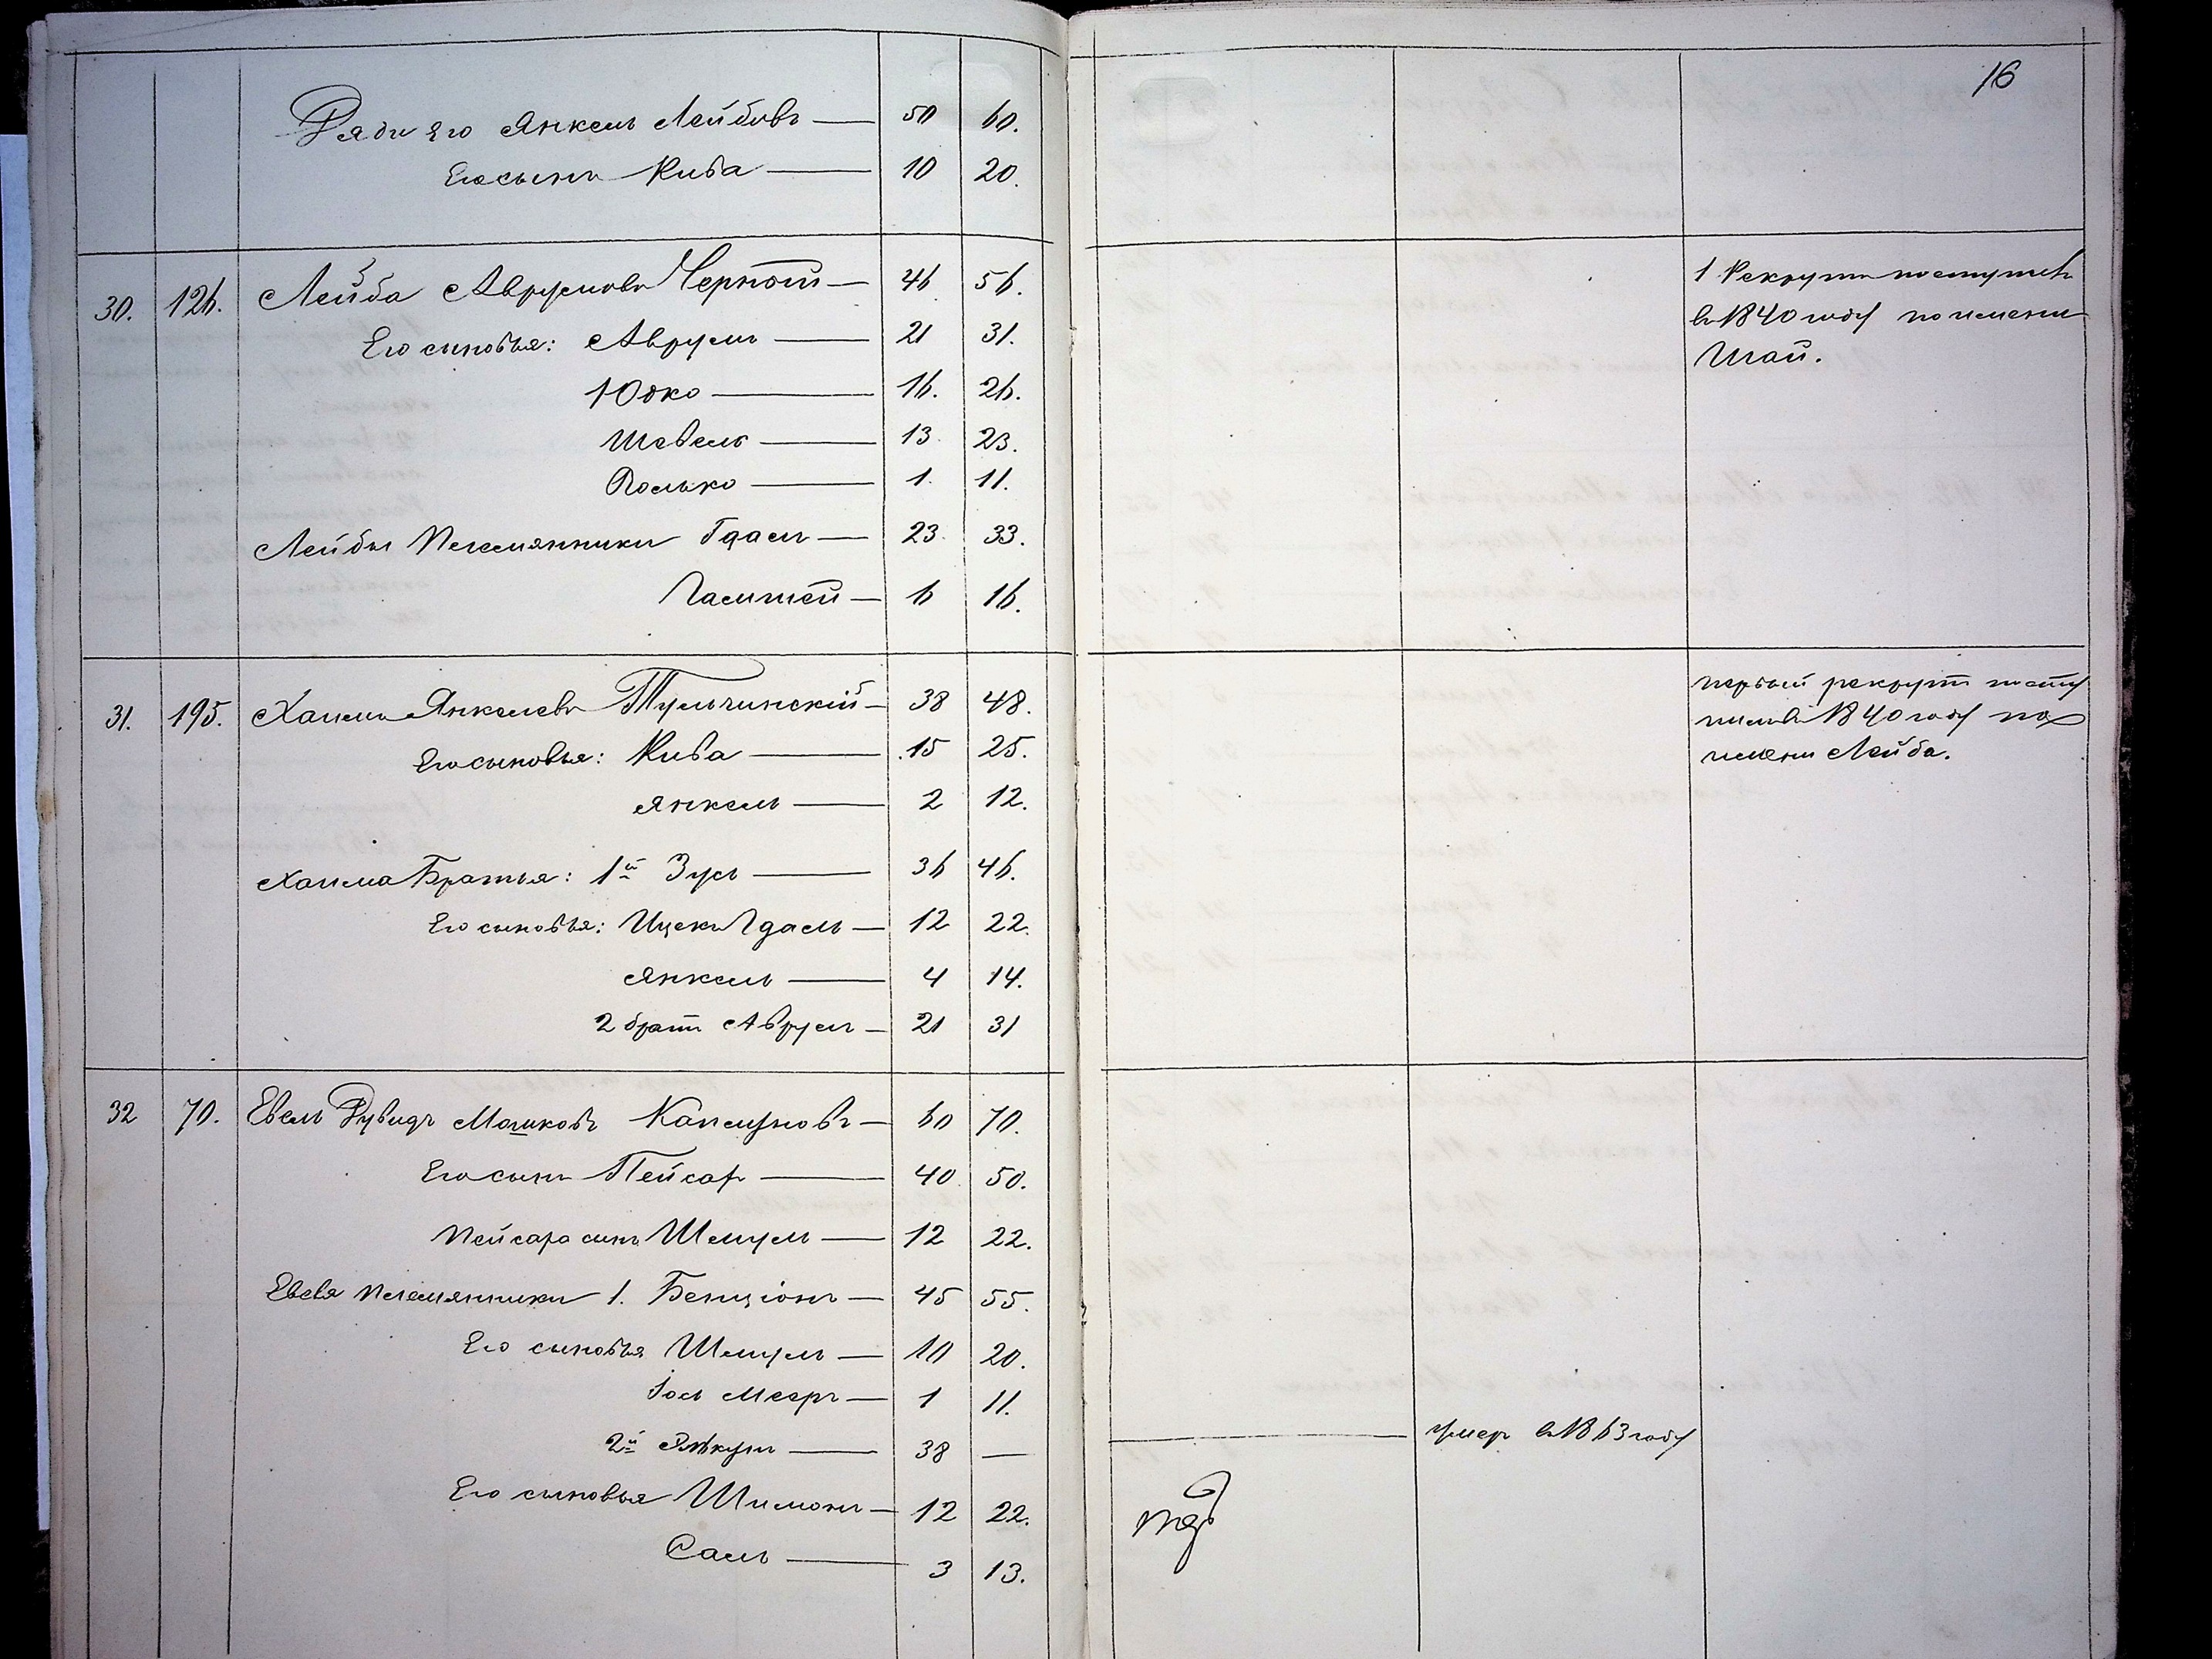 16
Дяди его Янкель Лейбовъ — 50 60.
Его сынъ Кива — 10 20.
30. 126. Лейба Аврумовъ Черной — 46 56. 1 Рекрутъ поступилъ
Его сыновья: Аврумъ — 21 31. въ 1840 году по имени
Шай.
Юдко — 16. 26.
Шевель — 13. 23.
Иосько — 1. 11.
Лейбы племянники Гдаль — 23. 33.
6 16.
31. 195. Хаимъ Янкелевъ Тульчинскій — 38 48. первый рекрутъ посту
Его сыновья: Кива — 15 25. пилъ въ 1840 году по
имени Лейба.
Янкель — 2 12.
Хаима Братья: 1й Зусь — 36 46.
Его сыновья: Ицекъ Гдаль — 12 22.
Янкель — 4 14.
2 братъ Аврумъ — 21 31
32 70. Евель Рувидъ Мошковъ Каплуновъ — 60 70.
Его сынъ Пейсар — 40. 50.
Пейсара сынъ Шмуль — 12 22.
Евеля племянники 1. Бенціонъ — 45 55.
Его сыновья Шмуль — 10 20.
Іось Мееръ — 1 11.
2й — 38 — умеръ въ 1863 году
Его сыновья Шимонъ — 12 22.
3 13.